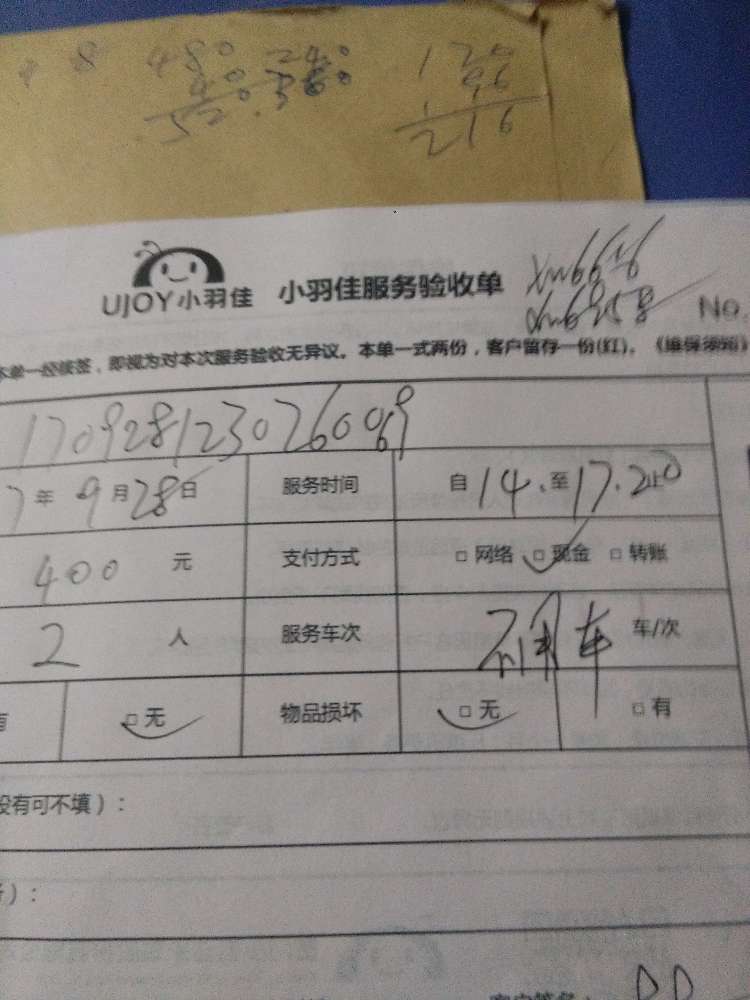 480 240
40 360
520
120
96
216
UJOY小羽佳 小羽佳服务验收单 No.
本单一经接签，即视为对本次服务验收无异议。本单一式两份，客户留存一份(红)。《维保须知》
170928123026069
7年 9月28日 服务时间 自14.至17.20止
400 元 支付方式 □网络 □现金 □转账
2 人 服务车次 不用车 车/次
□无 物品损坏 □无 □有
没有可不填）：
）：